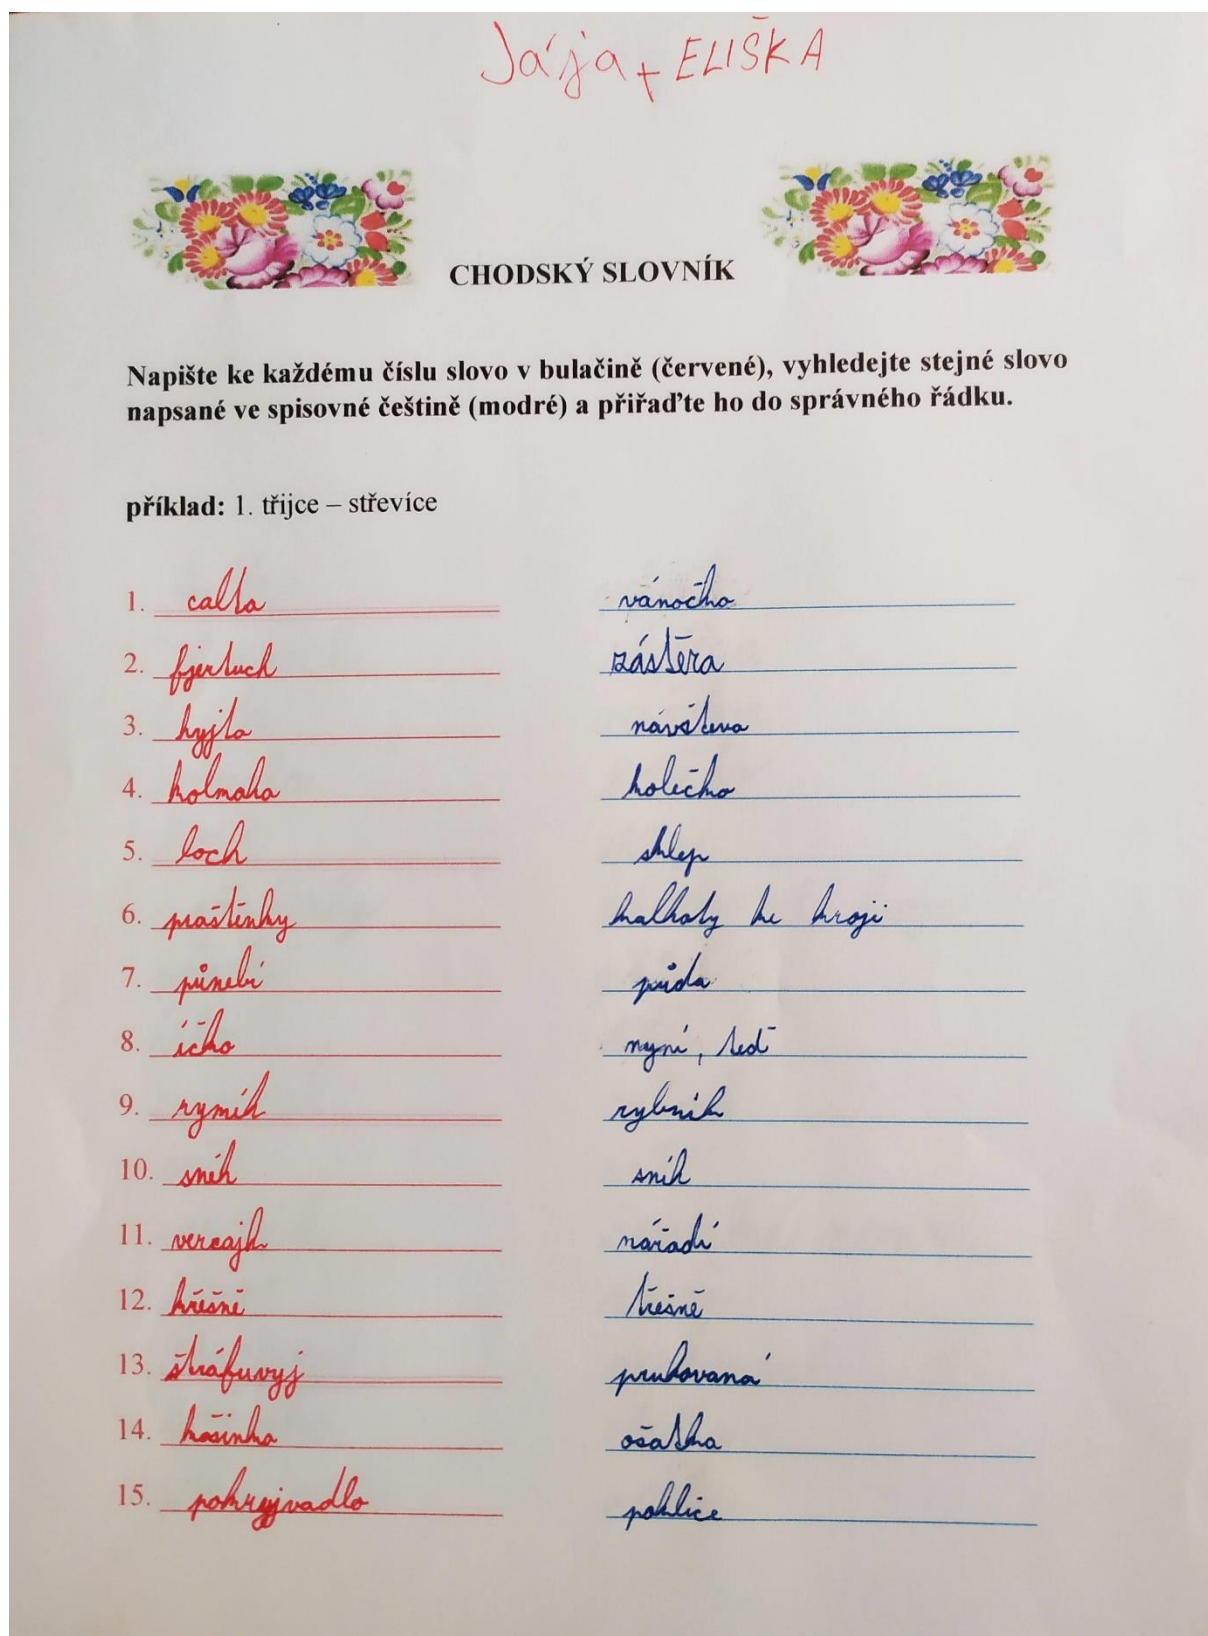 Jája + ELIŠKA
CHODSKÝ SLOVNÍK
Napište ke každému číslu slovo v bulačině (červené), vyhledejte stejné slovo
napsané ve spisovné češtině (modré) a přiřaďte ho do správného řádku.
příklad: 1. třijce – střevíce
1. calta vánočka
2. fjertuch zástěra
3. hyjta návšteva
4. kolmaha kolečko
5. loch sklep
6. praštěnky kalhoty ke kroji
7. půnebí půda
8. íčko nyní, teď
9. rymík rybnik
10. sněh sníh
11. vercajk nářadí
12. křešně třešně
13. štráfuvyj pruhovaná
14. košinka ošatka
15. pokryjvadlo poklice